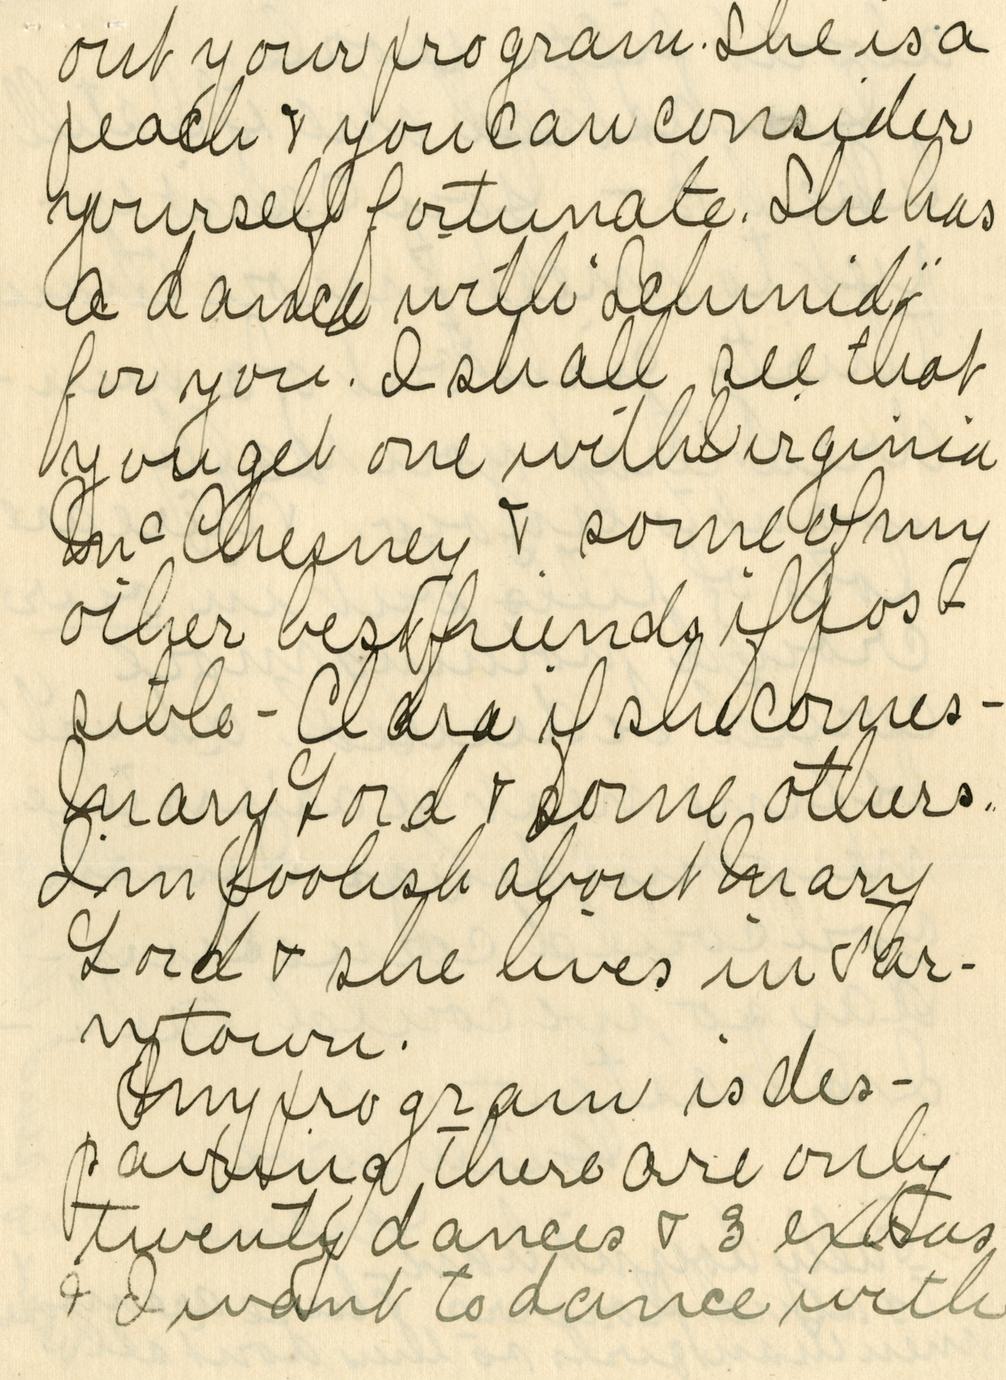 out your program. She is a
peach & you can consider
yourself fortunate. She has
a dance with "Schmidj"
for you. I shall see that
you get one with Virginia
McChesney & some of my
other best friends if pos-
sible - Clara if she comes -
Mary Lord & some others.
I'm foolish about Mary
Lord & she lives in Tar-
rytown.
My program is des-
pairing there are only
twenty dances & 3 extras
& I want to dance with